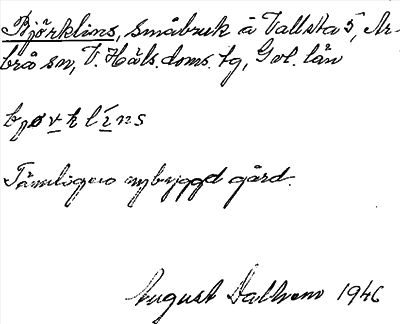 Björklins, småbruk å Vallsta 5, Ar-
brå sn, V. Häls. doms. tg, Gvl. län
bjørklins
Tämligen nybyggd gård.
August Dalhem 1946